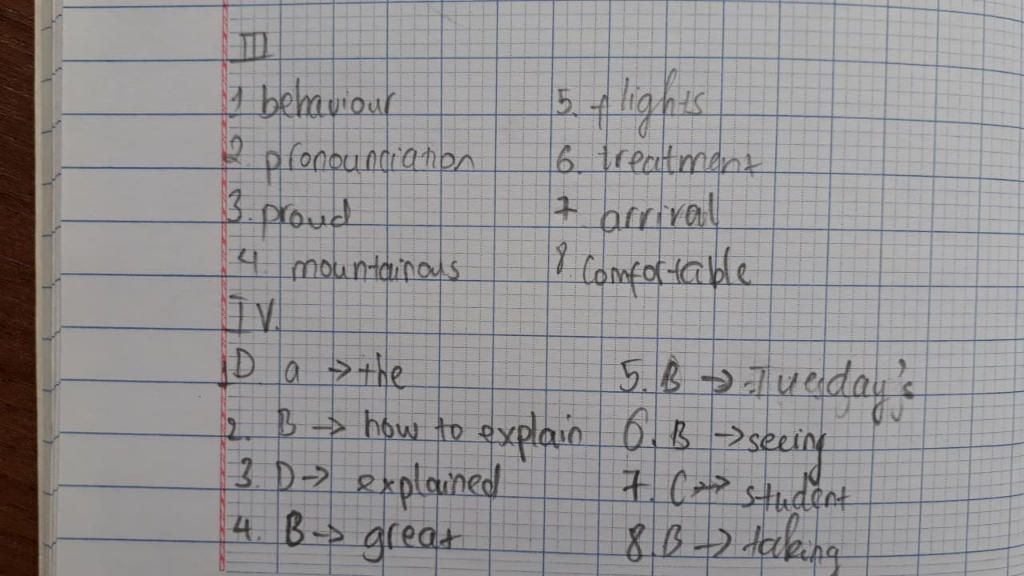 III
1 behaviour 5. flights
2. pronounciation 6. treatment
3. proud 7 arrival
4. mountainous 8 comfortable
IV.
1) a → the 5. B → Tuesday's
2. B → how to explain 6. B → seeing
3. D → explained 7. C → student
4. B → great 8. B → taking